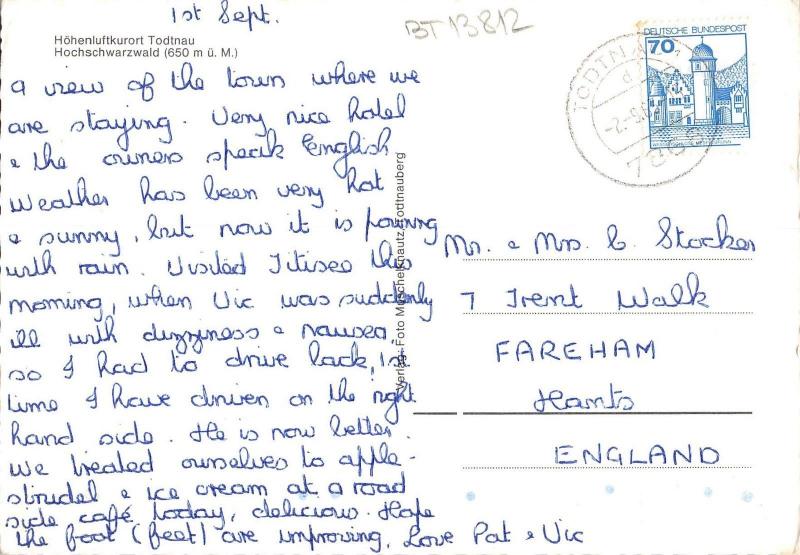 1st Sept.
BT 13812
Höhenluftkurort Todtnau
Hochschwarzwald (650 m ü. M.)
DEUTSCHE BUNDESPOST
70
TODTNAU
7868
a view of the town where we
are staying. Very nice hotel
& the owners speak English
Weather has been very hot
& sunny, but now it is pouring
with rain. Visited Titisee this
morning, when Vic was suddenly
ill with dizziness & nausea,
so I had to drive back, 1st
time I have driven on the right
hand side. He is now better.
We treated ourselves to apple-
strudel & ice cream at a road
side café today, delicious. Hope
the foot (feet) are improving, Love Pat & Vic
Verlag: Foto Muschelknautz, Todtnauberg
Mr. & Mrs C. Stocker
7 Trent Walk
FAREHAM
Hants
ENGLAND